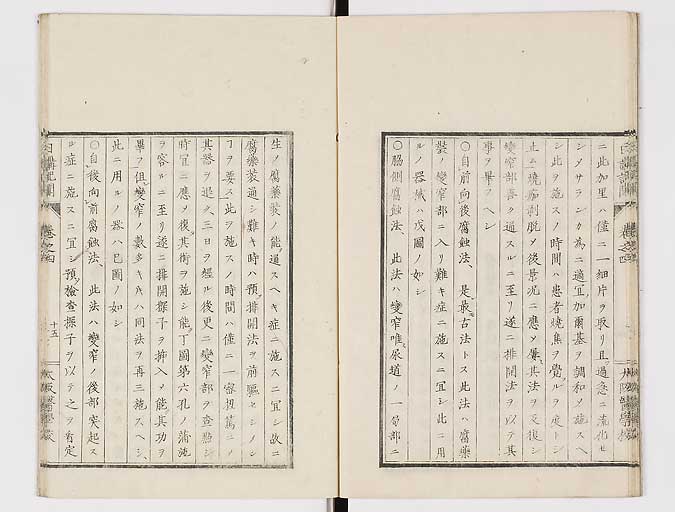 ニ此加里ハ僅ニ一細片ヲ取リ且過急ニ流化セ
シメサランカ為ニ適宜加爾基ヲ調和シ施スヘ
シ此ヲ施スノ時間ハ患者燒焦ヲ覺ルヲ度トシ
止ム燒痂剥脱ノ後景况ニ應メ屢其法ヲ反復シ
變窄部善ク過スルニ至リ遂ニ排開法ヲ以テ其
事ヲ畢フヘシ
〇自前向後腐蝕法、是最古法トス此法ハ腐藥
裝ノ變窄部ニ入リ難キ症ニ施スニ宜シ此ニ用
ルノ器械ハ戊圖ノ如シ
〇腸側腐蝕法、此法ハ變窄唯尿道ノ一局部ニ
生ノ腐藥裝ノ能通スヘキ症ニ施スニ宜シ故ニ
腐藥裝通シ難キ時ハ預排開法ヲ前驅セシメン
ヿヲ要ス此ヲ施スノ時間ハ僅ニ一密扭篤ニノ
其器ヲ退ク、三日ヲ經ル後更ニ變窄部ヲ查點シ
時冝ニ應メ後其術ヲ施シ能丁圖第六孔ノ蒲施
ヲ容ルニ至リ遂ニ排開探子ヲ挿入メ能其功ヲ
畢フ但變窄ノ數多キ片ハ同法ヲ再三施スヘシ、
此ニ用ルノ器ハ巳圖ノ如シ
〇自後向前腐蝕法、此法ハ變窄ノ後部突起ス
ル症ニ施スニ宜シ預檢查探子ヲ以テ之ヲ肯定
日講記聞
卷之四
十五
大阪醫學校